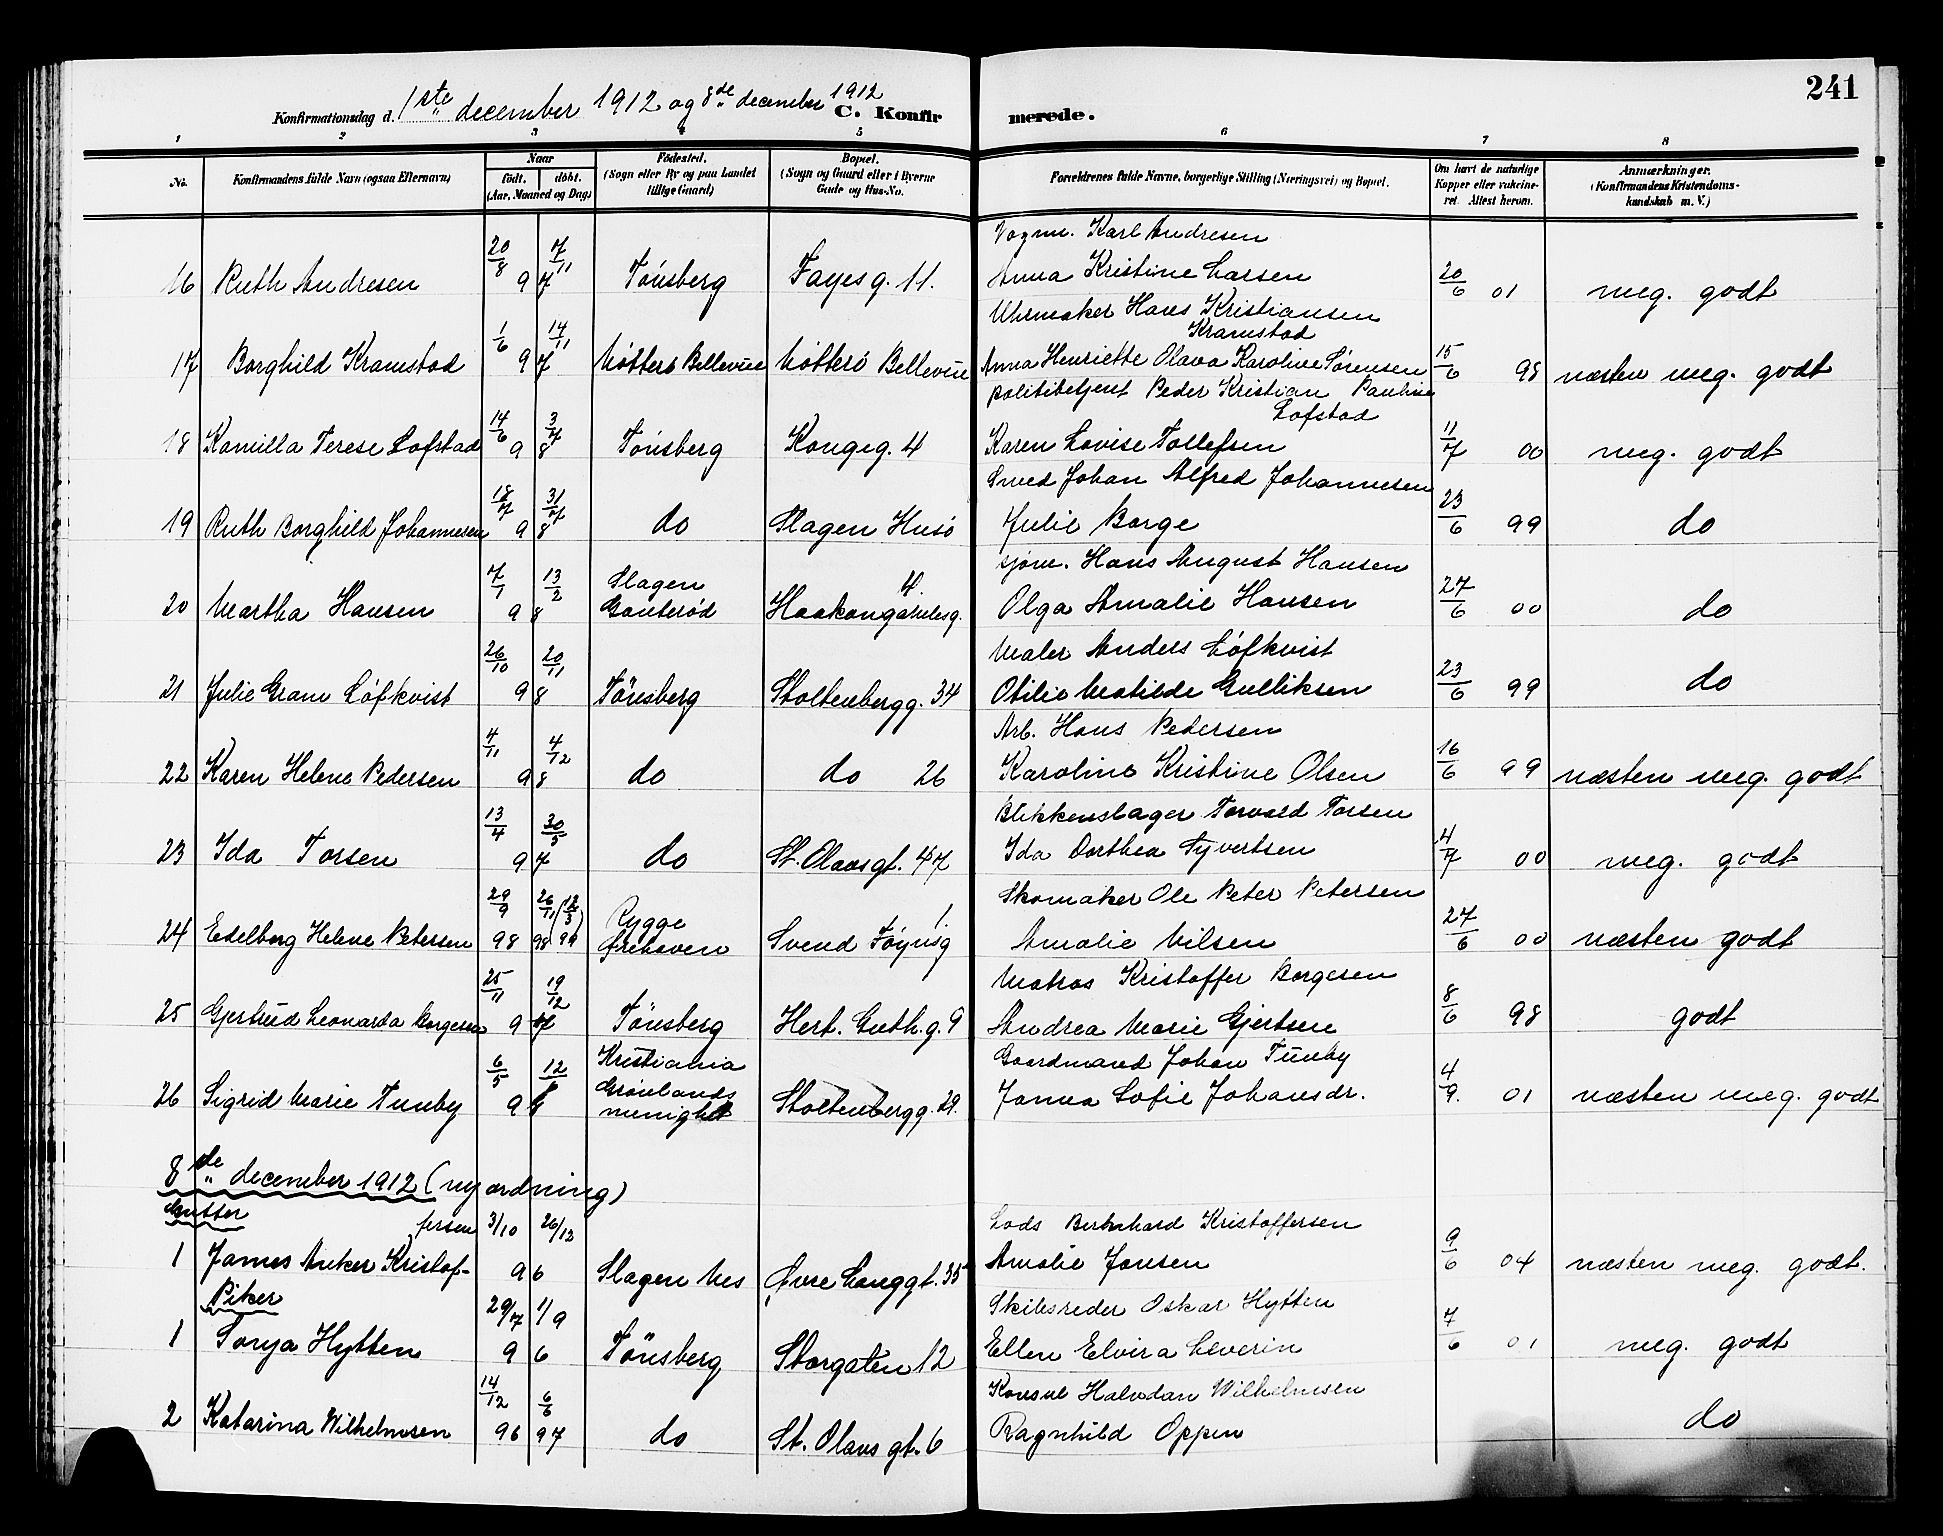 241
Konfirmationsdag d. 1ste december 1912 og 8de december 1912 C. Konfirmerede.
1 2 3 4 5 6 7 8
No. Konfirmandens fulde Navn (ogsaa Efternavn) Naar født. døbt. (Aar, Maaned og Dag) Födested. (Sogn eller By og paa Landet tillige Gaard) Bopæl. (Sogn og Gaard eller i Byerne Gade og Hus-No. Forældrenes fulde Navne, borgerlige Stilling (Næringsvei) og Bopæl. Om havt de naturlige Kopper eller vakcineret. Attest herom. Anmærkninger. (Konfirmandens Kristendomskundskab m. V.)
Vogm. Karl Andresen
16 Ruth Andresen 20/8 7/11 97 Tönsberg Fayesg. 11. Anna Kristine Larsen 20/6 01 meg. godt
Uhrmaker Hans Kristiansen Kramstad
17 Borghild Kramstad 1/6 14/11 97 Nötterö Bellevue Nötterö Bellevue Anna Henriette Olava Karoline Sørensen 15/6 98 næsten meg. godt
politibetjent Peder Kristian Pauline Lofstad
18 Kamilla Terese Lofstad 14/6 3/7 98 Tönsberg Kongeg. 4 Karen Lovise Tollefsen 11/7 00 meg. godt
Smed Johan Alfred Johannesen
19 Ruth Borghild Johannesen 18/7 31/7 98 do Slagen Husö Julie Borge 23/6 99 do
sjøm. Hans August Hansen
20 Martha Hansen 7/1 13/2 98 Slagen Gauterød Haakongamlesg. 4. Olga Amalie Hansen 27/6 00 do
Maler Anders Löfkvist
21 Julie Gram Löfkvist 26/10 20/11 98 Tönsberg Stoltenbergg. 34 Otilie Matilde Gulliksen 23/6 99 do
Arb. Hans Pedersen
22 Karen Helene Pedersen 4/11 4/12 98 do do 26 Karoline Kristine Olsen 16/6 99 næsten meg. godt
Blikkenslager Torvald Torsen
23 Ida Torsen 13/4 30/5 97 do St. Olavsgt. 47 Ida Dorthea Syvertsen 4/7 00 meg. godt
Skomaker Ole Peter Petersen
24 Edelborg Helene Petersen 29/9 98 26/11 98 (12/3 99) Rygge Ørehaven Svend Föynsg 1. Amalie Nilsen 27/6 00 næsten godt
Matros Kristoffer Borgesen
25 Gjertrud Leonarda Borgesen 25/11 19/12 97 Tönsberg Hert. Guth. g. 9 Andrea Marie Gjertsen 8/6 98 godt
Gaardmand Johan Tunby
26 Sigrid Marie Tunby 6/5 12/6 98 Kristiania Grönlands menighet Stoltenbergg. 29. Janna Sofie Johansdr. 4/9. 01 næsten meg. godt
8de december 1912 (ny ordning)
Gutter
Lods Bernhard Kristoffersen
1 James Anker Kristoffersen 3/10 26/12 96 Slagen Nes Øvre Langgt. 35 Amalie Jansen 9/6 04 næsten meg. godt.
Piker
Skibsreder Oskar Hytten
1 Sonja Hytten 29/7 1/9 96 Tönsberg Storgaten 12 Ellen Elvira Severin 7/6 01 meg. godt
Konsul Halvdan Wilhelmsen
2 Katarina Wilhelmsen 14/12 96 6/6 97 do St. Olavs gt. 6 Ragnhild Oppen do